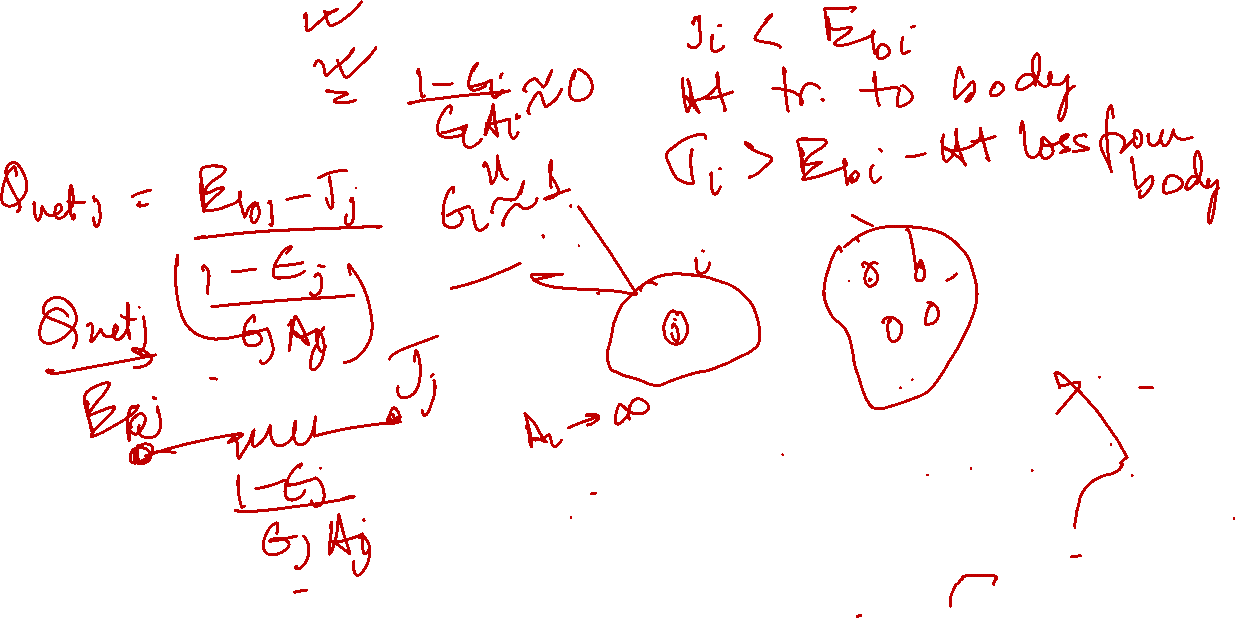 J_i < E_{bi}
Ht tr. to body
J_i > E_{bi} - Ht loss from body
\frac{1-ϵ_i}{ϵ_i A_i} ≈ 0
ϵ_i ≈ 1
Q_{net j} = \frac{E_{bj} - J_j}{\left(\frac{1-ϵ_j}{ϵ_j A_j}\right)}
i
j
A_i → ∞
Q_{net j}
E_{bj}
J_j
\frac{1-ϵ_j}{ϵ_j A_j}